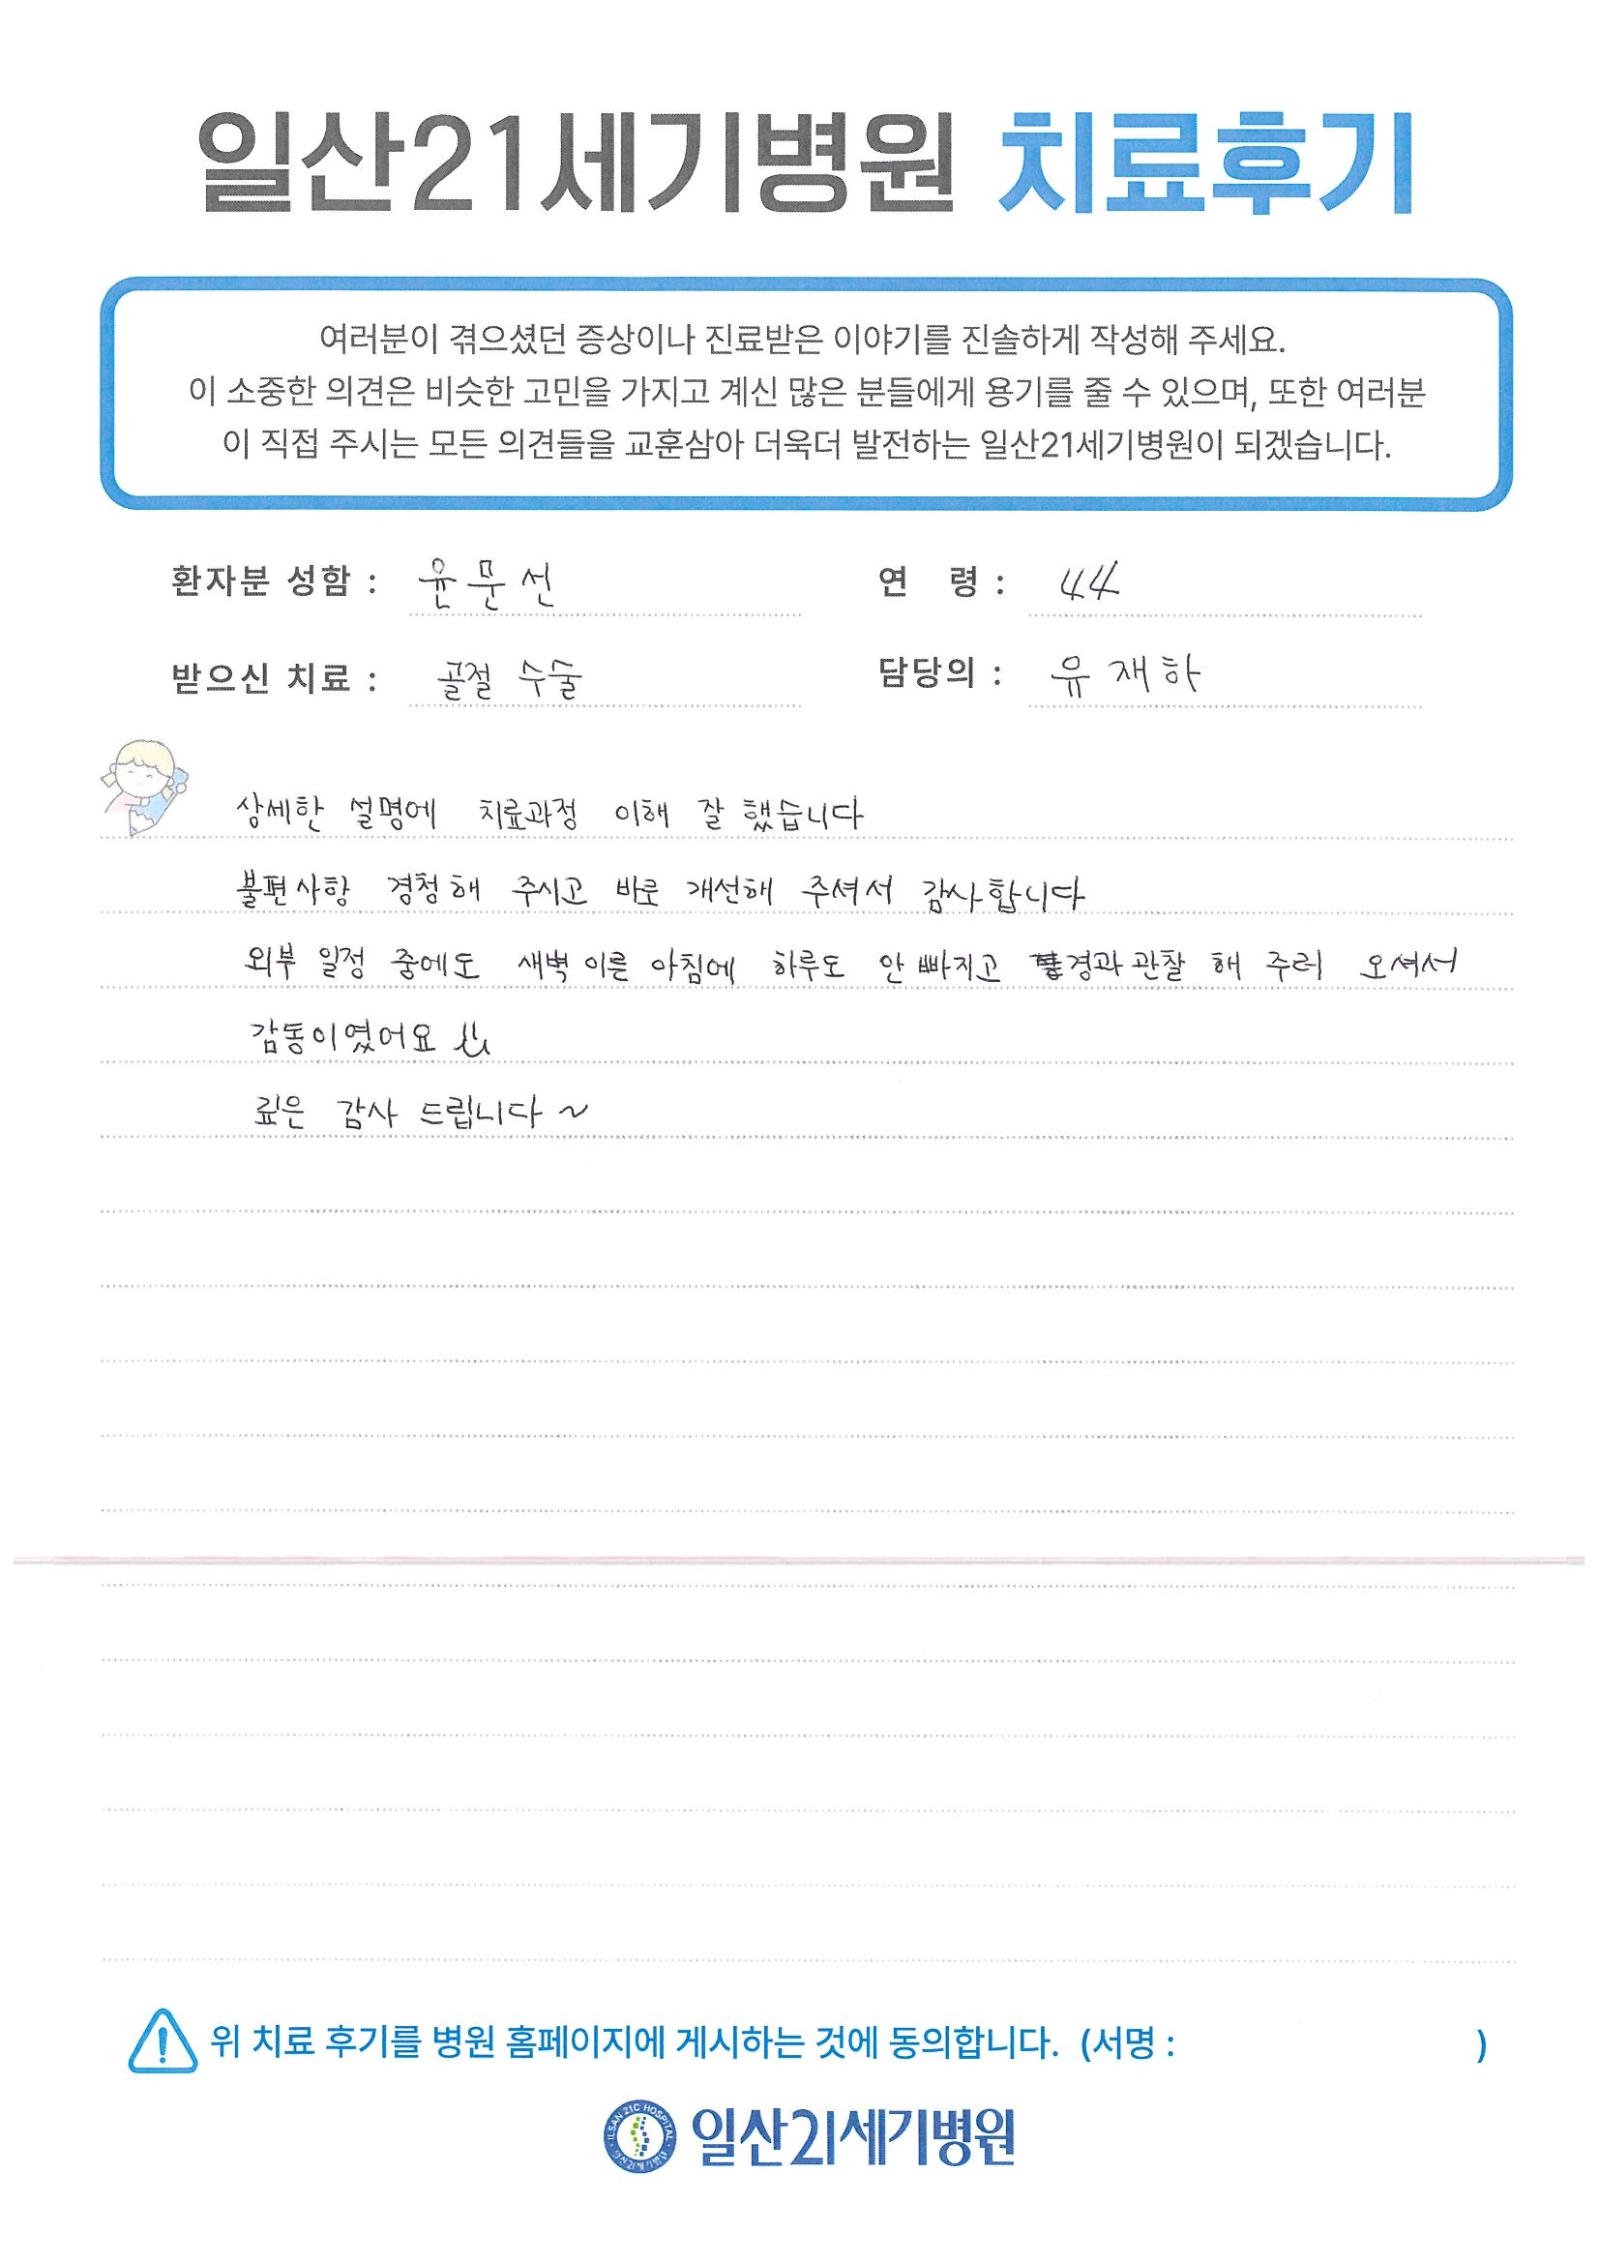 일산21세기병원 치료후기
여러분이 겪으셨던 증상이나 진료받은 이야기를 진솔하게 작성해 주세요.
이 소중한 의견은 비슷한 고민을 가지고 계신 많은 분들에게 용기를 줄 수 있으며, 또한 여러분
이 직접 주시는 모든 의견들을 교훈삼아 더욱더 발전하는 일산21세기병원이 되겠습니다.
환자분 성함 : 윤문선 연 령 : 44
받으신 치료 : 골절 수술 담당의 : 유재하
상세한 설명에 치료과정 이해 잘 했습니다
불편사항 경청해 주시고 바로 개선해 주셔서 감사합니다
외부 일정 중에도 새벽 이른 아침에 하루도 안 빠지고 경과 관찰 해 주러 오셔서
감동이였어요
깊은 감사 드립니다 ~
위 치료 후기를 병원 홈페이지에 게시하는 것에 동의합니다. (서명 : )
ILSAN 21C HOSPITAL
일산21세기병원
일산21세기병원